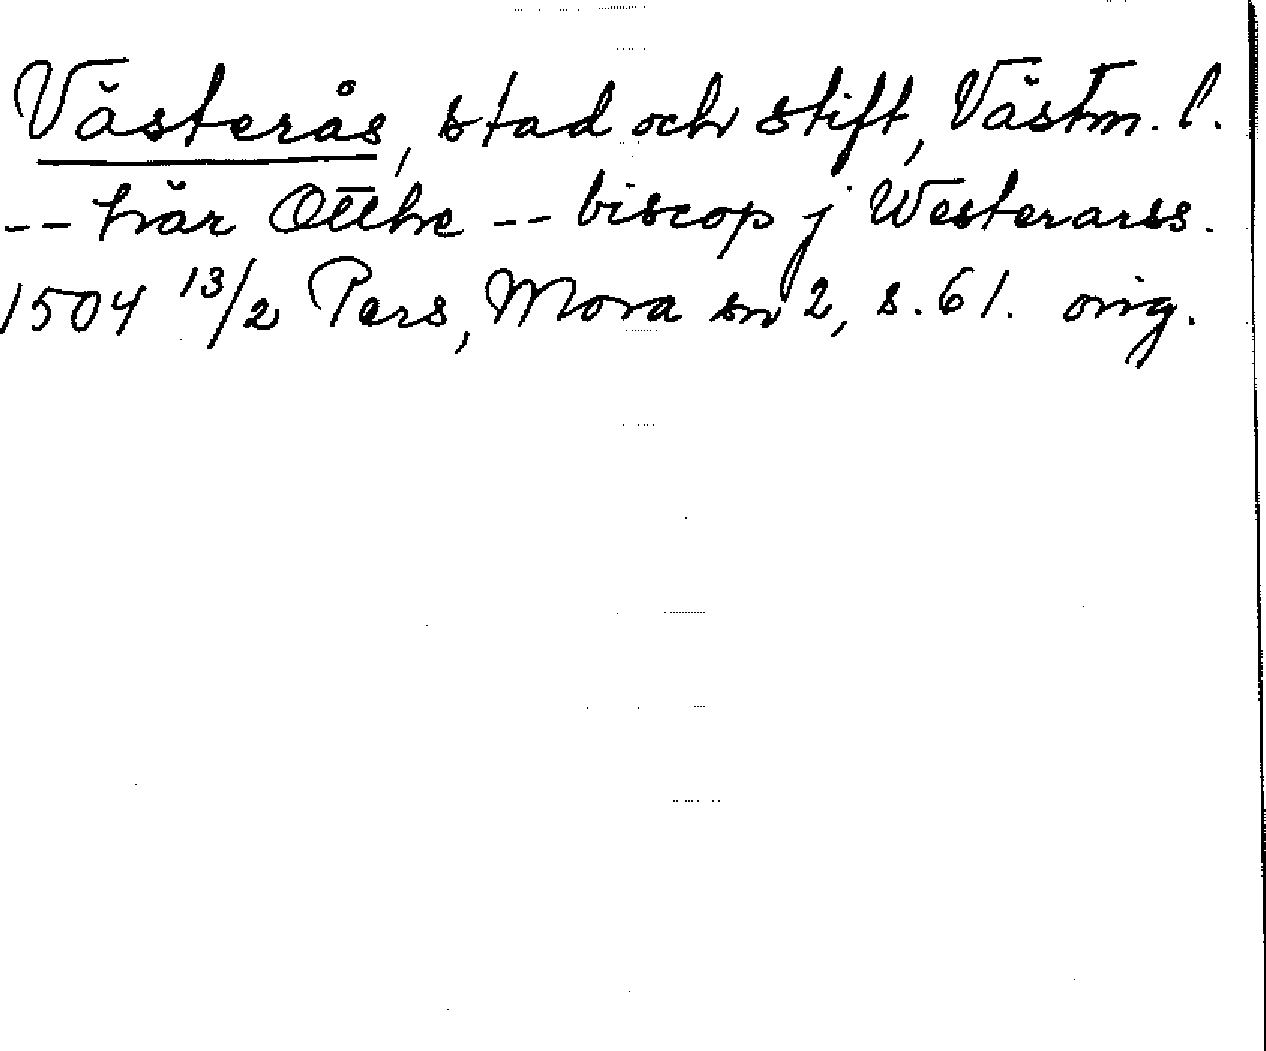 Västerås, stad och stift, Västm. l.
-- här Otthe -- biscop j Westerarss.
1504 13/2 Pers, Mora sn 2, s. 61. orig.